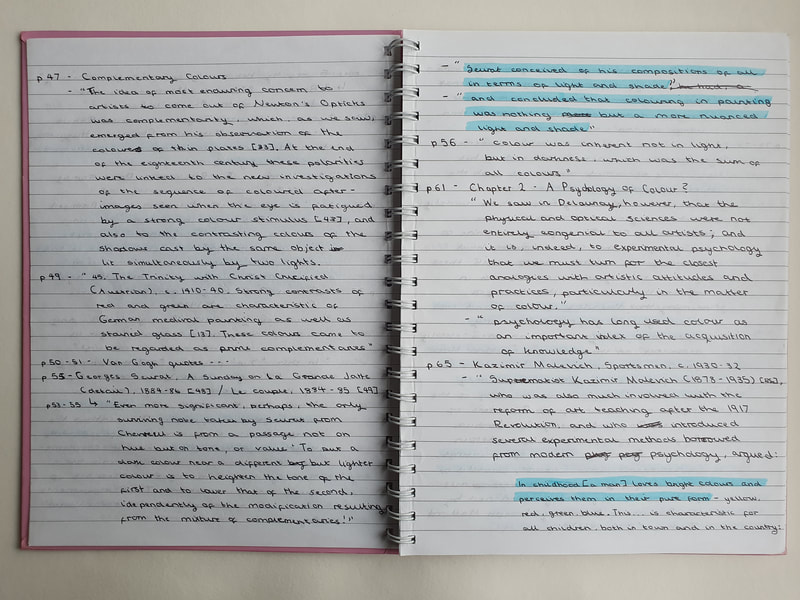 p47 - Complementary Colours
- "The idea of most enduring concern to
artists to come out of Newton's Opticks
was complementarity, which, as we saw,
emerged from his observation of the
colours of thin plates [23]. At the end
of the eighteenth century these polarities
were linked to the new investigations
of the sequence of coloured after-
images seen when the eye is fatigued
by a strong colour stimulus [43], and
also to the contrasting colours of the
shadows cast by the same object
lit simultaneously by two lights.
p49 - "45. The Trinity with Christ Crucified
(Austrian), c. 1410-40. Strong contrasts of
red and green are characteristic of
German medival painting as well as
stained glass [13]. These colours came to
be regarded as prime complementaries"
p50-51 - Van Gogh quotes - - -
p55 - Georges Seurat, A Sunday on La Grande Jatte
(detail), 1884-86 [48] / Le couple, 1884-85 [49]
p53-55 ↳ "Even more significant, perhaps, the only
surviving note taken by Seurat from
Chevreul is from a passage not on
hue but on tone, or value 'To put a
dark colour near a different but lighter
colour is to heighten the tone of the
first and to lower that of the second,
independently of the modification resulting
from the mixture of complementaries!'"
- "Seurat conceived of his compositions of all
in terms of light and shade"
- "and concluded that colouring in painting
was nothing but a more nuanced
light and shade"
p56 - "colour was inherent not in light,
but in darkness, which was the sum of
all colours"
p61 - Chapter 2 - A Psychology of Colour?
"We saw in Delaunay, however, that the
physical and optical sciences were not
entirely congenial to all artists; and
it is, indeed, to experimental psychology
that we must turn for the closest
analogies with artistic attitudes and
practices, particularly in the matter
of colour."
- "psychology has long used colour as
an important index of the acquisition
of knowledge"
p65 - Kazimir Malevich, Sportsmen, c. 1930-32
- "Suprematist Kazimir Malevich (1878-1935)
who was also much involved with the
reform of art teaching after the 1917
Revolution, and who introduced
several experimental methods borrowed
from modern psychology, argued:
In childhood [a man] loves bright colours and
perceives them in their pure form - yellow,
red, green, blue. This... is characteristic for
all children, both in town and in the country: